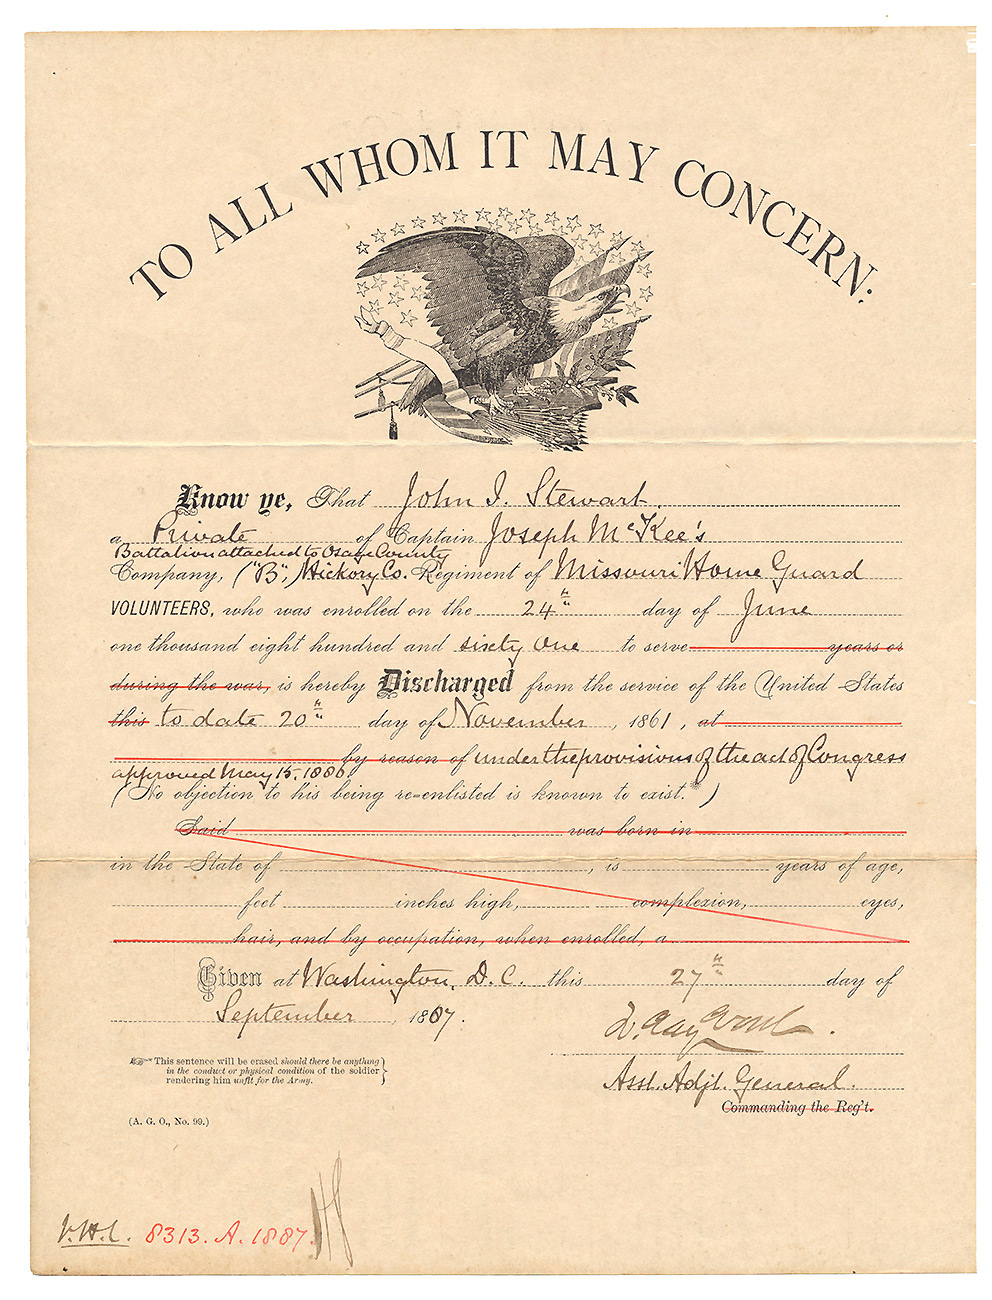 TO ALL WHOM IT MAY CONCERN:
Know ye, That John I. Stewart
a Private of Captain Joseph McKee's
Battalion attached to Osage County
Company, ("B",) Hickory Co. Regiment of Missouri Home Guard
VOLUNTEERS, who was enrolled on the 24th day of June
one thousand eight hundred and sixty One to serve years or
during the war, is hereby Discharged from the service of the United States
this to date 20th day of November, 1861, at
by reason of under the provisions of the act of Congress
approved May 15, 1886
(No objection to his being re-enlisted is known to exist.*)
Said was born in
in the State of , is years of age,
feet inches high, complexion, eyes,
hair, and by occupation, when enrolled, a
Given at Washington, D. C. this 27th day of
September, 1887.
Asst. Adjt. General.
Commanding the Reg't.
This sentence will be erased should there be anything
in the conduct or physical condition of the soldier
rendering him unfit for the Army.
(A. G. O., No. 99.)
8313. A. 1887.